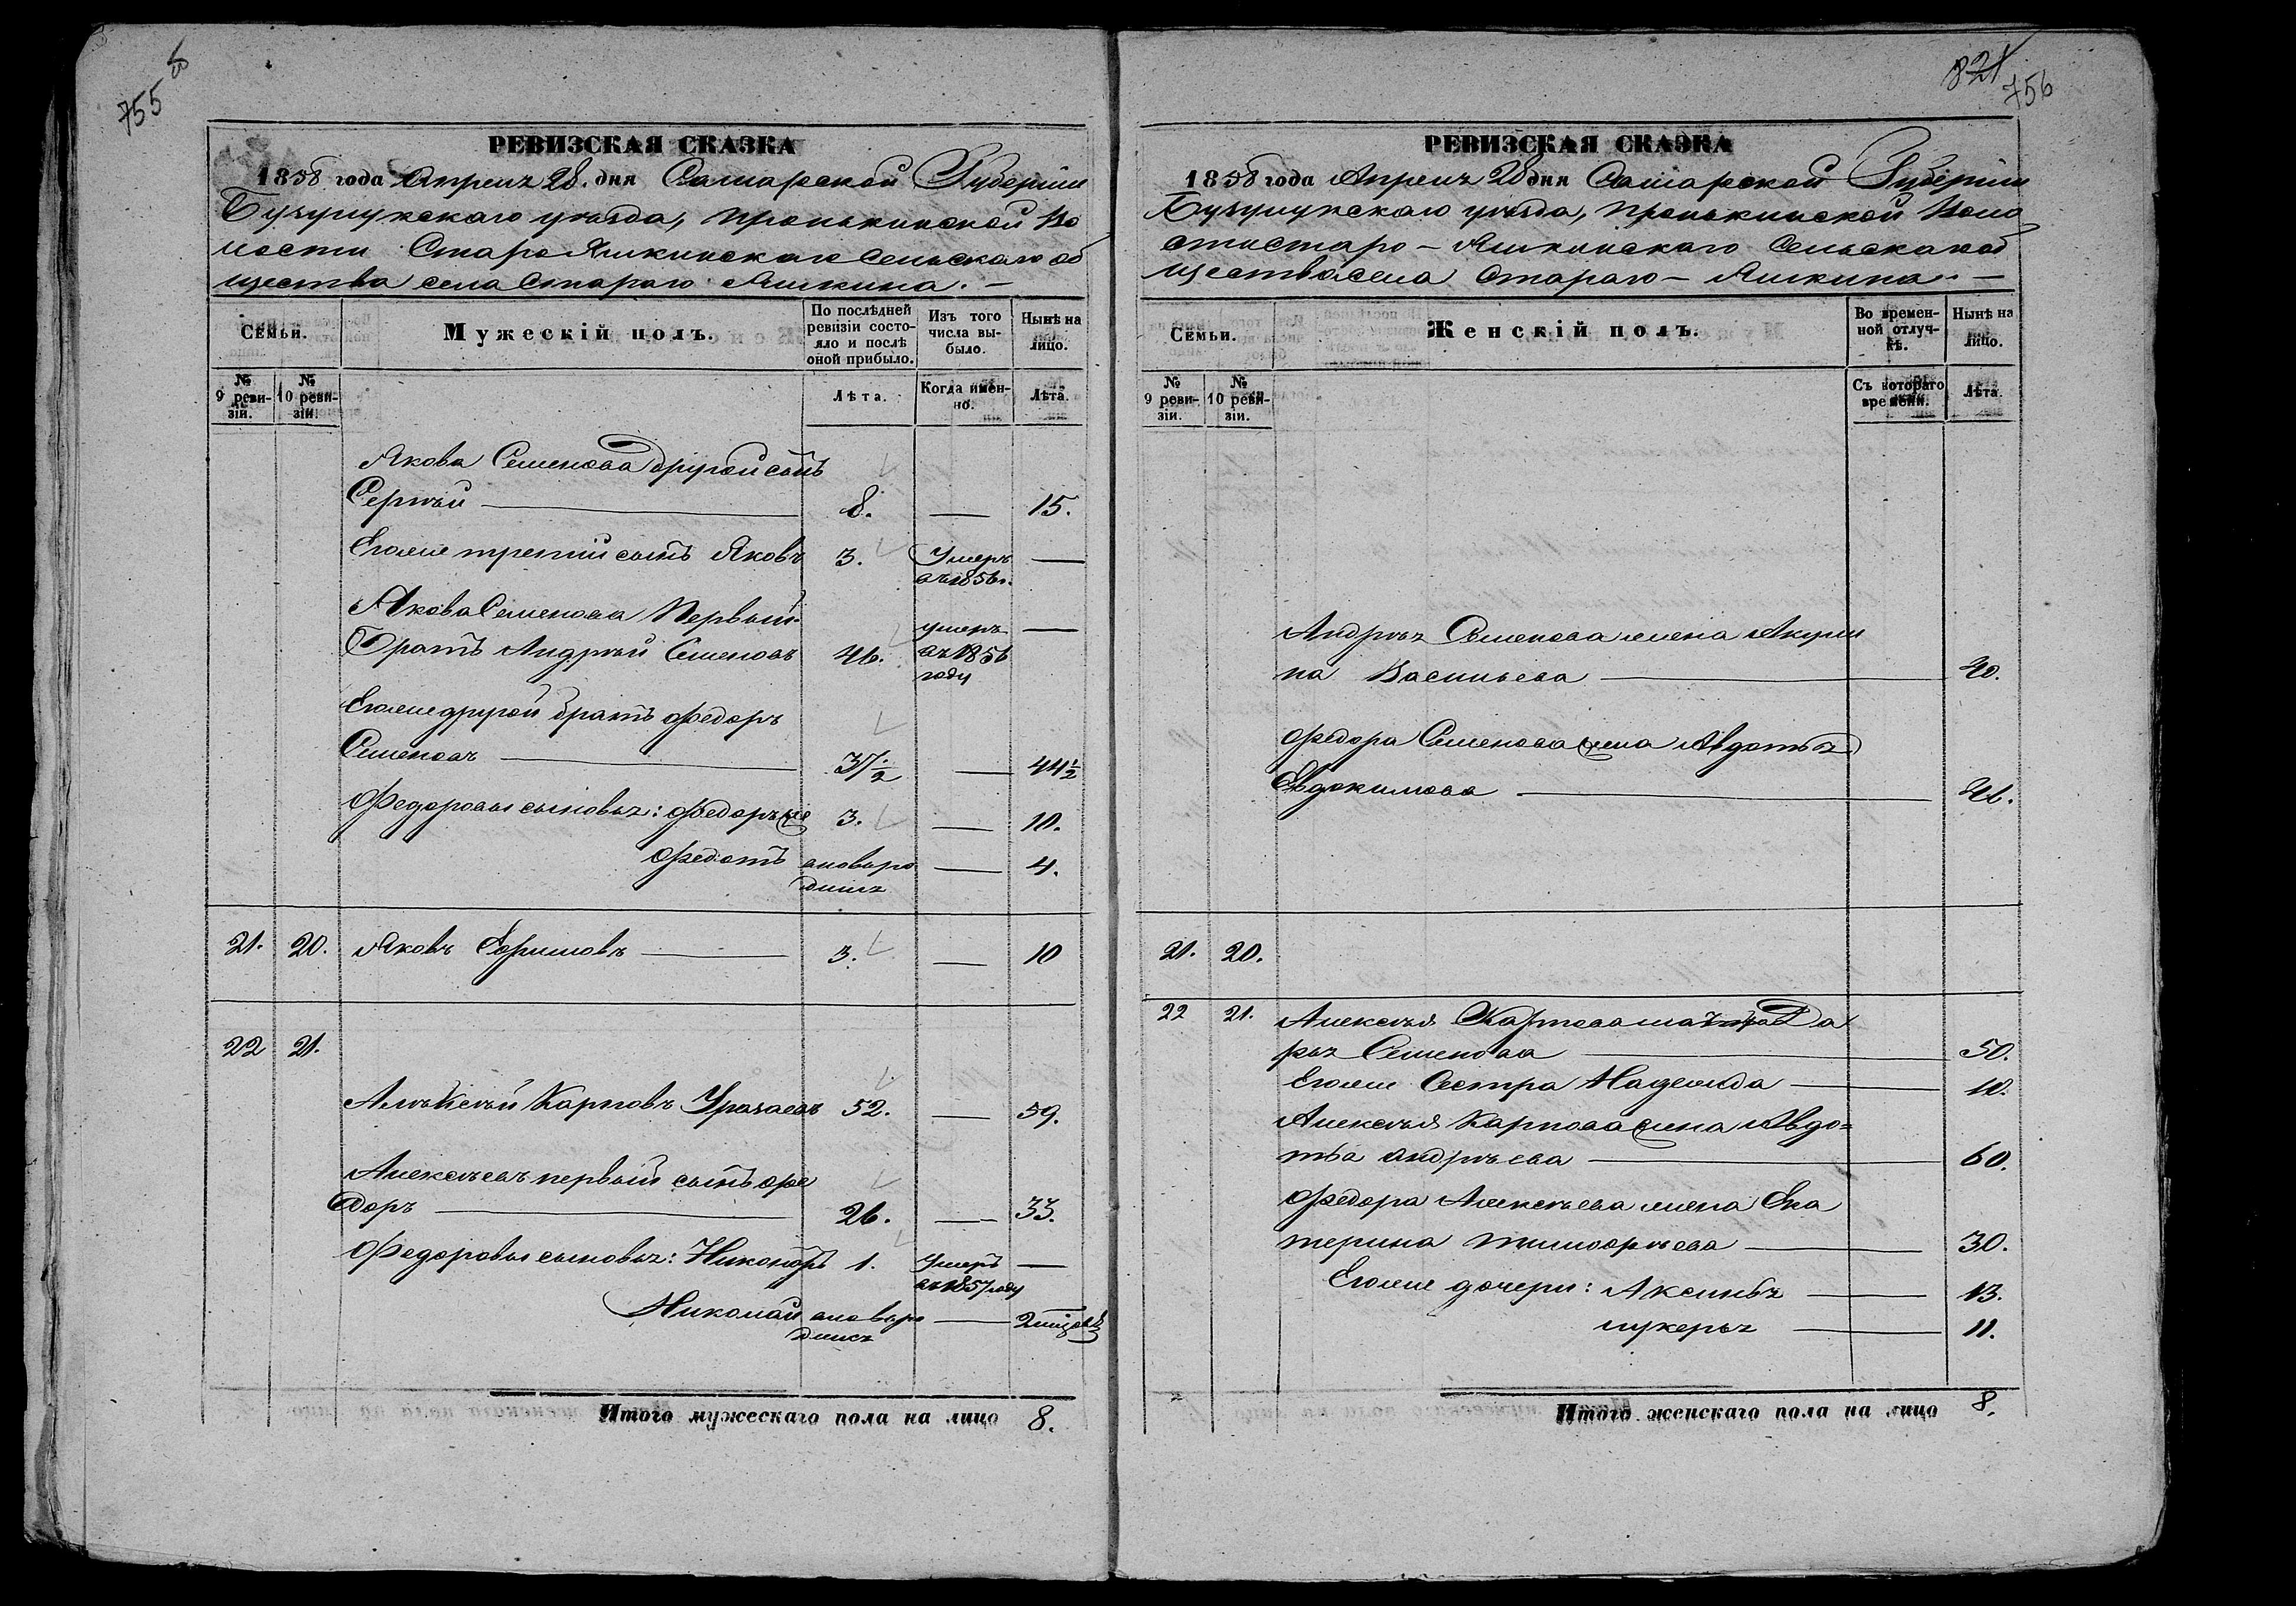 755
821
756
РЕВИЗСКАЯ СКАЗКА
1858 года Апреля 28. дня Самарской Губернiи
Бузулукскаго уѣзда, Пронькинской Во
лости Старо Яшкинскаго Сельскаго об
щества села Стараго Яшкина. —
Семьи.
Мужескій полъ.
По послѣдней ревизіи состояло и послѣ оной прибыло.
Изъ того числа выбыло.
Нынѣ на лицо.
№ 9 ревизіи.
№ 10 ревизіи.
Лѣта.
Когда именно.
Лѣта.
Якова Семенова другой сынъ
Сергѣй — 8. — 15.
Егоже третій сынъ Яковъ 3. Умеръ въ 1856г. —
Якова Семенова Первый
Братъ Андрѣй Семеновъ 46. умеръ въ 1856 году —
Егоже другой братъ Федоръ
Семеновъ — 37½ — 44½
Федоровы сыновья: Федоръ 3. — 10.
Федотъ вновь родился — 4.
21. 20. Яковъ Ефимовъ — 3. — 10
22 21.
Алѣксѣй Карповъ Уразаевъ 52. — 59.
Алексѣевъ первый сынъ Фе
доръ — 26. — 33.
Федоровы сыновья: Никоноръ 1. Умеръ въ 1857 году —
Николай вновь родился — 2 мѣсяц.
Итого мужескаго пола на лицо 8.
РЕВИЗСКАЯ СКАЗКА
1858 года Апреля 28 дня Самарской Губернiи
Бузулукскаго уѣзда, Пронькинской Воло
сти старо-Яшкинскаго Сельскаго об
щества села Стараго-Яшкина. —
Семьи.
Женскій полъ.
Во временной отлучкѣ.
Нынѣ на лицо.
№ 9 ревизіи.
№ 10 ревизіи.
Съ котораго времени.
Лѣта.
Андрѣя Семенова жена Акули
на Васильева — 40.
Федора Семенова жена Авдотья
Евдокимова — 46.
21. 20.
22 21. Алексѣя Карпова Да
рья Семенова — 50.
Егоже Сестра Надежда — 10.
Алексѣя Карпова жена Авдо=
тья Андрѣева — 60.
Федора Алексѣева жена Ека
терина Тимофѣева — 30.
Егоже дочери: Аксинья — 13.
лукерья — 11.
Итого женскаго пола на лицо 8.